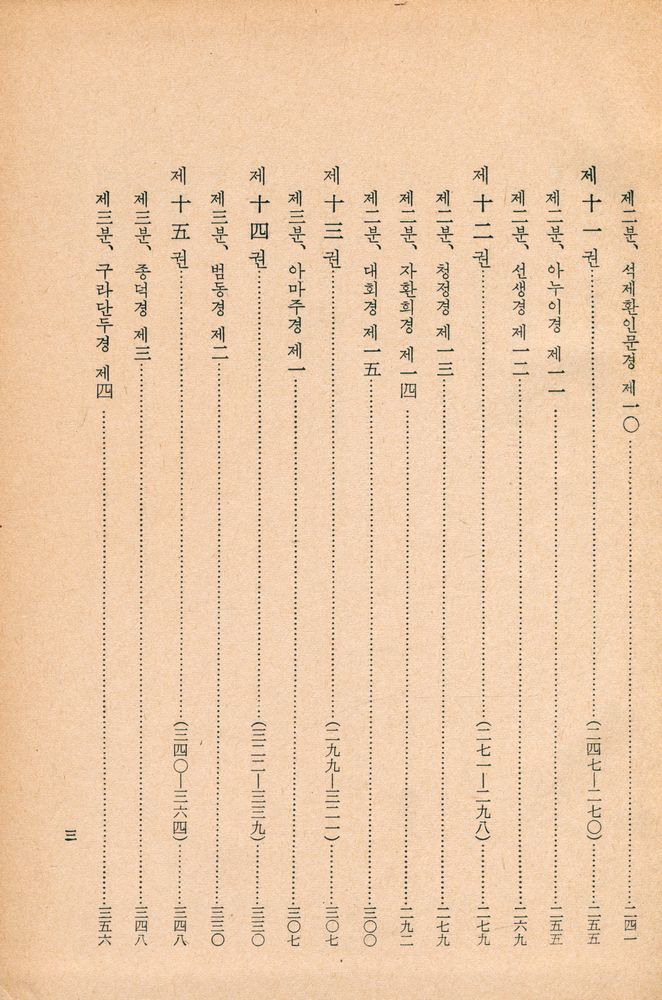 제二분、 석제환인문경 제一〇……二四一
제十一권……(二四七—二七〇)……二五五
제二분、 아누이경 제一一……二五五
제二분、 선생경 제一二……二六九
제十二권……(二七一—二九八)……二七九
제二분、 청정경 제一三……二七九
제二분、 자환희경 제一四……二九二
제二분、 대회경 제一五……三〇〇
제十三권……(二九九—三二一)……三〇七
제三분、 아마주경 제一……三〇七
제十四권……(三二二—三三九)……三三〇
제三분、 범동경 제二……三三〇
제十五권……(三四〇—三六四)……三四八
제三분、 종덕경 제三……三四八
제三분、 구라단두경 제四……三五六
三